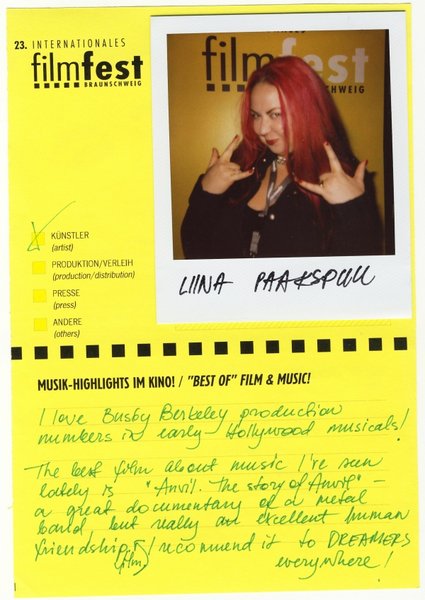 23. INTERNATIONALES
filmfest
BRAUNSCHWEIG
filmfest
BRAUNSCHWEIG
LIINA PAAKSPUU
KÜNSTLER
(artist)
PRODUKTION/VERLEIH
(production/distribution)
PRESSE
(press)
ANDERE
(others)
MUSIK-HIGHLIGHTS IM KINO! / "BEST OF" FILM & MUSIC!
I love Busby Berkeley production
numbers in early Hollywood musicals!
The best film about music I've seen
lately is "Anvil. The story of Anvil" –
a great documentary of a metal
band but really an excellent human
friendship film, I recommend it to DREAMERS
everywhere!